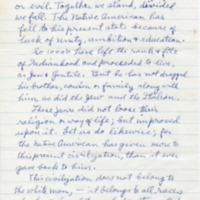 or evil. Together we stand, divided
we fall. The Native American has
fell to this present state because of
lack of unity, ambition & education.
So 1000's have left the rank & file
of Indianhood and proceeded to live,
as Jew & Gentile. But he has not dragged
his brother, cousin or family along with
him, as did the Jew and the Italian.
These Jews did not lose their
religion or way of life, but improved
upon it. Let us do likewise; for
the Native American has given more to
this present civilization, than it ever
gave back to him.
This civilization does not belong to
the white man, – it belongs to all races